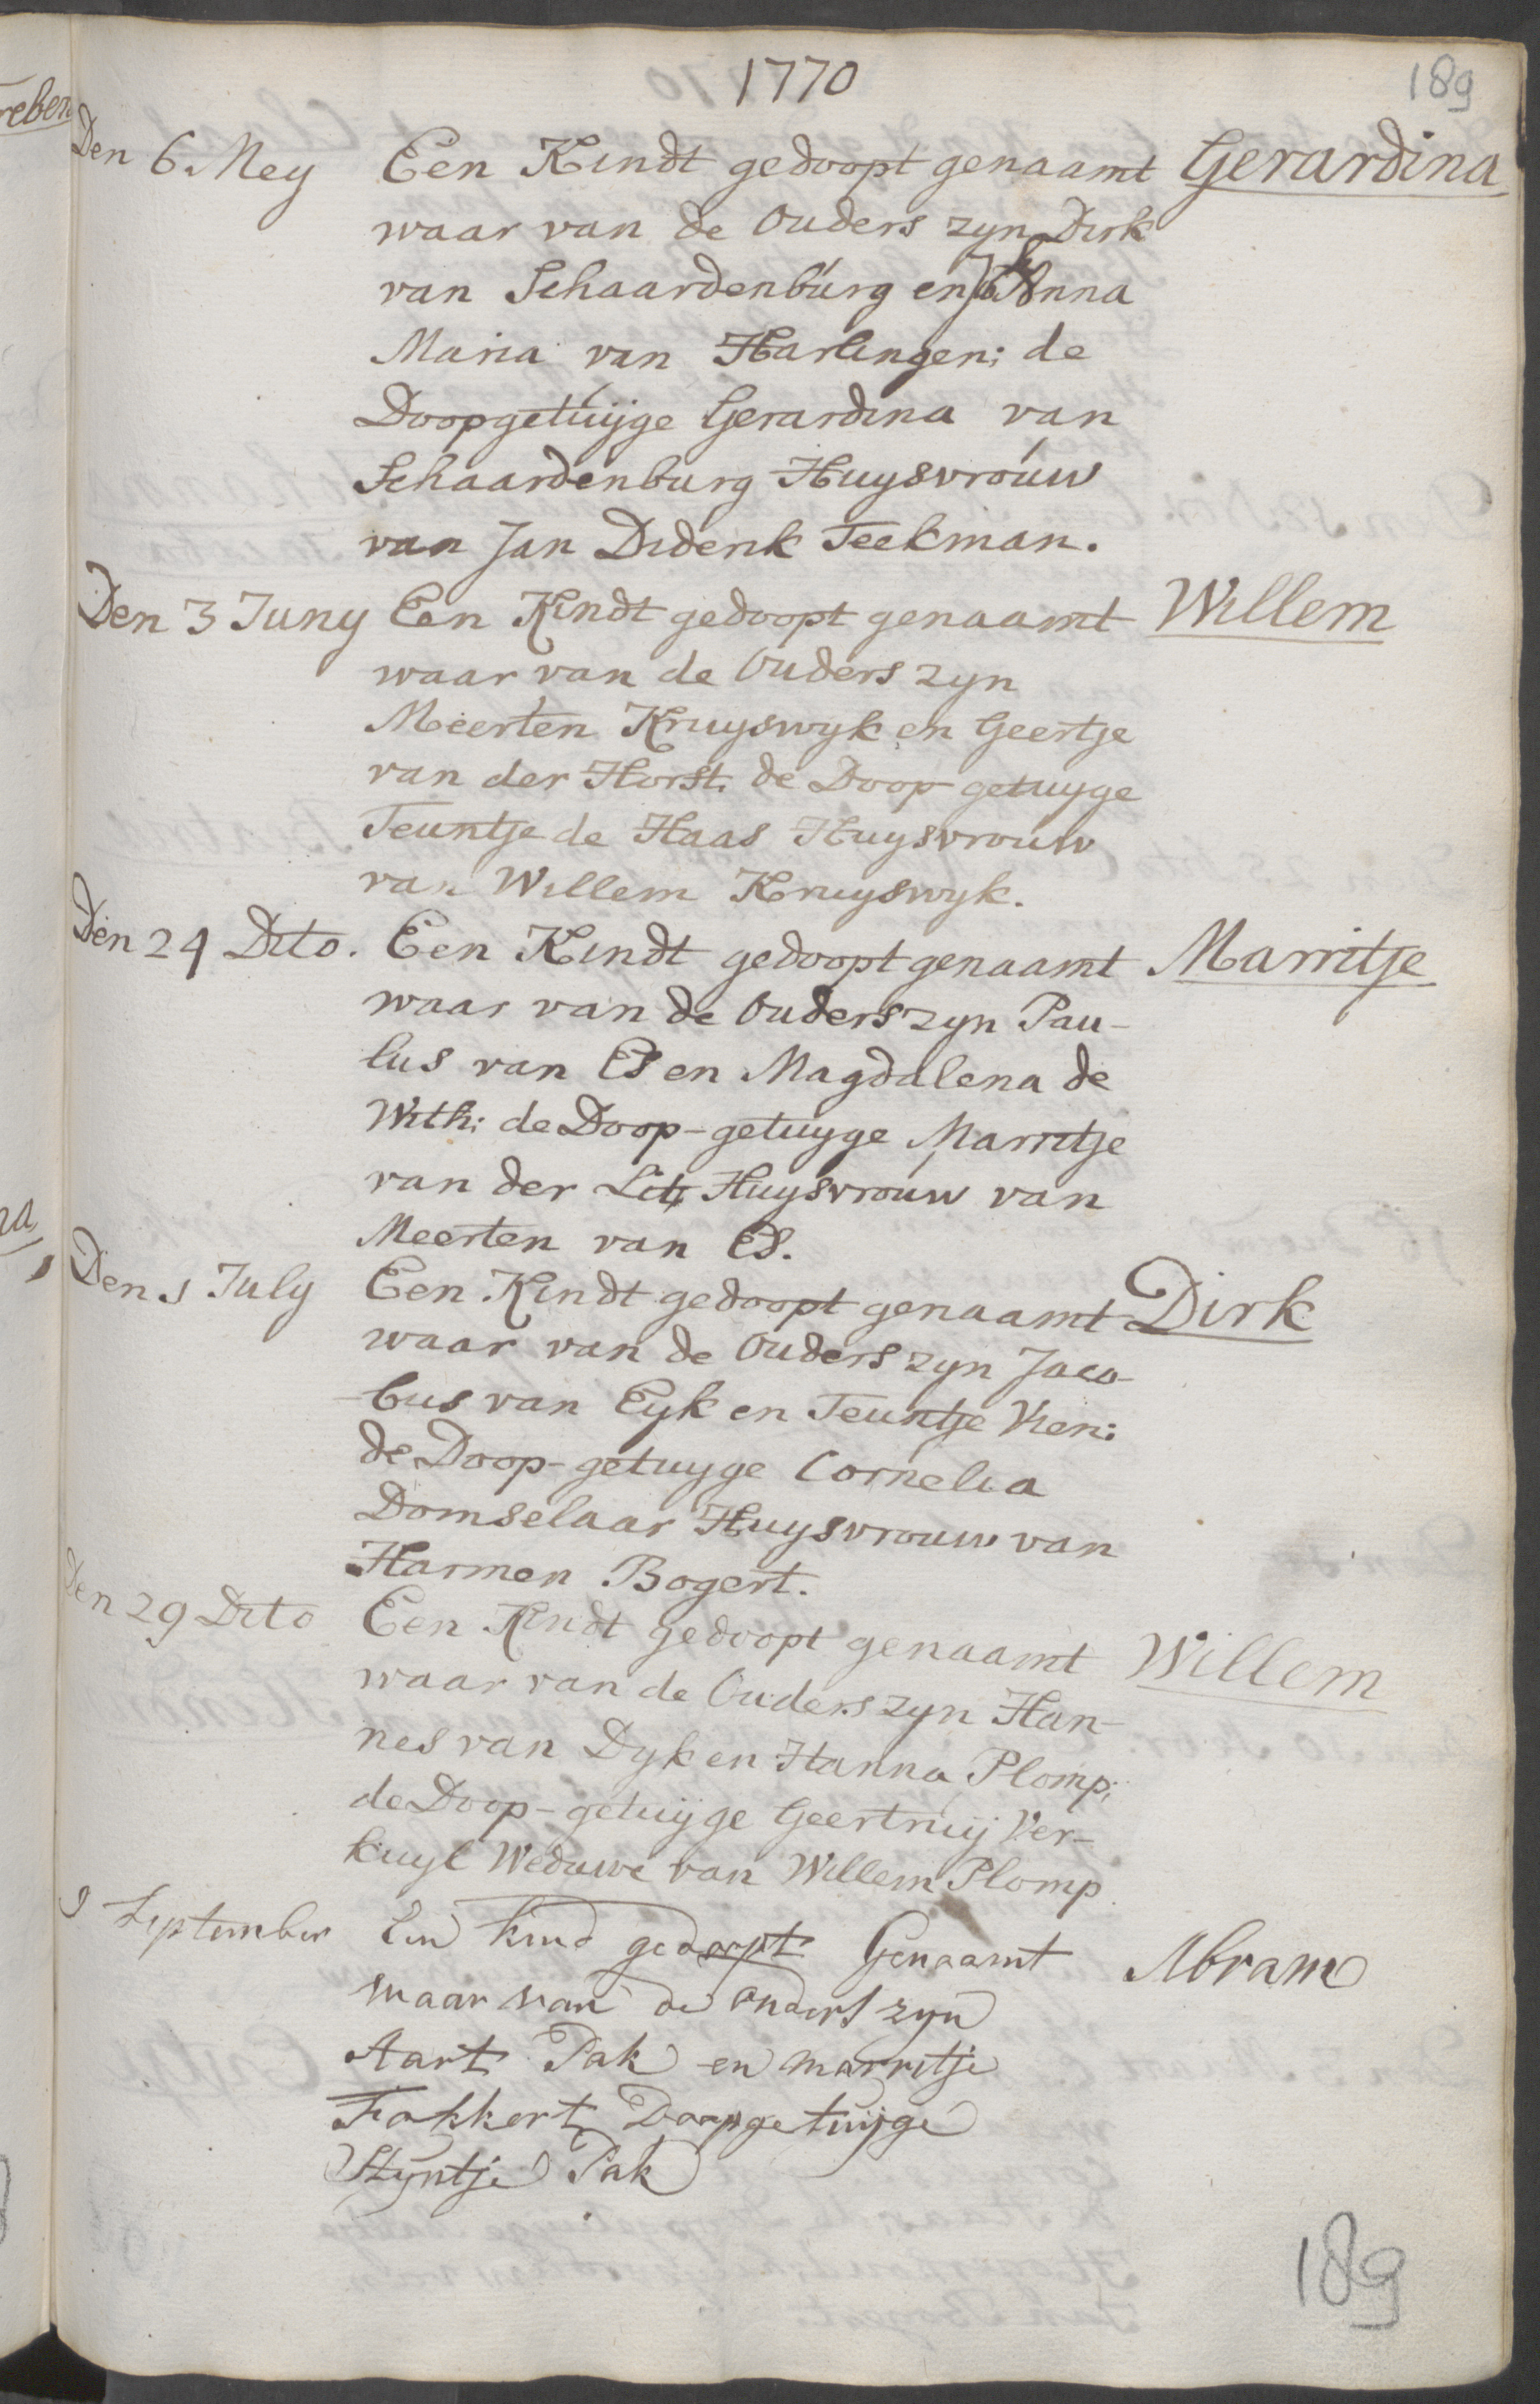 1770
189
Den 6. Mey Een Kindt gedoopt genaamt Gerardina
waar van de Ouders zyn Dirk
van Schaardenburg en Anna
Maria van Harlingen; de
Doopgetuijge Gerardina van
Schaardenburg Huysvrouw
van Jan Diderik Teekman.
Den 3 Juny Een Kindt gedoopt genaamt Willem
waar van de Ouders zyn
Meerten Kruyswyk en Geertje
van der Horst. de Doop getuyge
Teuntje de Haas Huysvrouw
van Willem Kruyswyk.
Den 24 Dito. Een Kindt gedoopt genaamt Marritje
waar van de Ouders zyn Pau-
lus van Es en Magdalena de
With; de Doop-getuyge Marritje
van der Huysvrouw van
Meerten van Es.
Den 1 July Een Kindt gedoopt genaamt Dirk
waar van de Ouders zyn Jaco-
bus van Eyk en Teuntje
de Doop-getuyge Cornelia
Domselaar Huysvrouw van
Harmen Bogert.
Den 29 Dito Een Kindt gedoopt genaamt Willem
waar van de Ouders zyn Han-
nes van Dyk en Hanna Plomp;
de Doop-getuijge Geertruij Ver-
kuyl Weduwe van Willem Plomp
September Een kind gedoopt Genaamt Abram
waar van de ouders zyn
Aart Pak en marritje
Fokkert Doopgetuijge
Styntje Pak
189